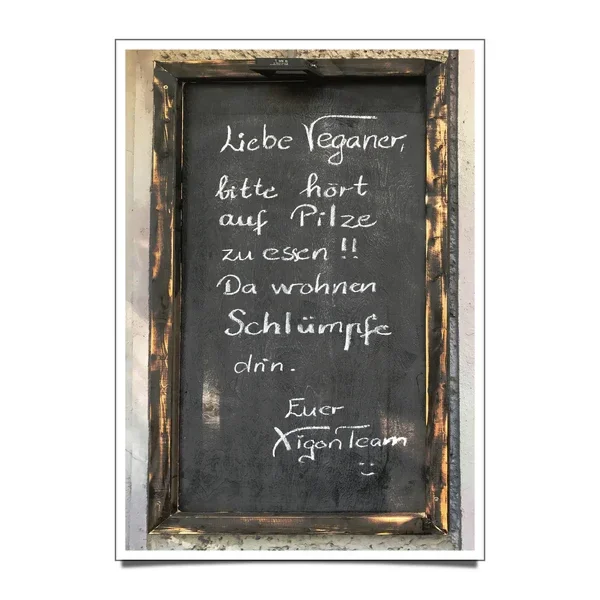 Liebe Veganer,
bitte hört
auf Pilze
zu essen !!
Da wohnen
Schlümpfe
drin.
Euer
XigonTeam